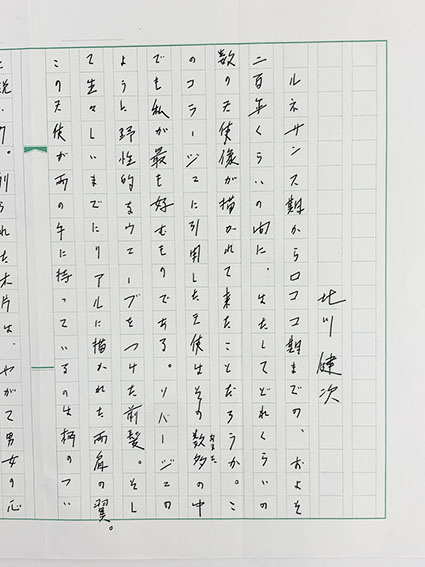 北川健次
ルネサンス期からロココ期までの、およそ
二百年くらいの間に、はたしてどれくらいの
数の天使像が描かれて来たことだろうか。こ
のコラージュに引用した天使はその数多の中
あまた
でも私が最も好むものである。リバージュの
ように野性的なウエーブをつけた前髪。そし
て生々しいまでにリアルに描かれた両肩の翼。
この天使が両の手に持っているのは柄のつい
た木片は、やがて男女の心